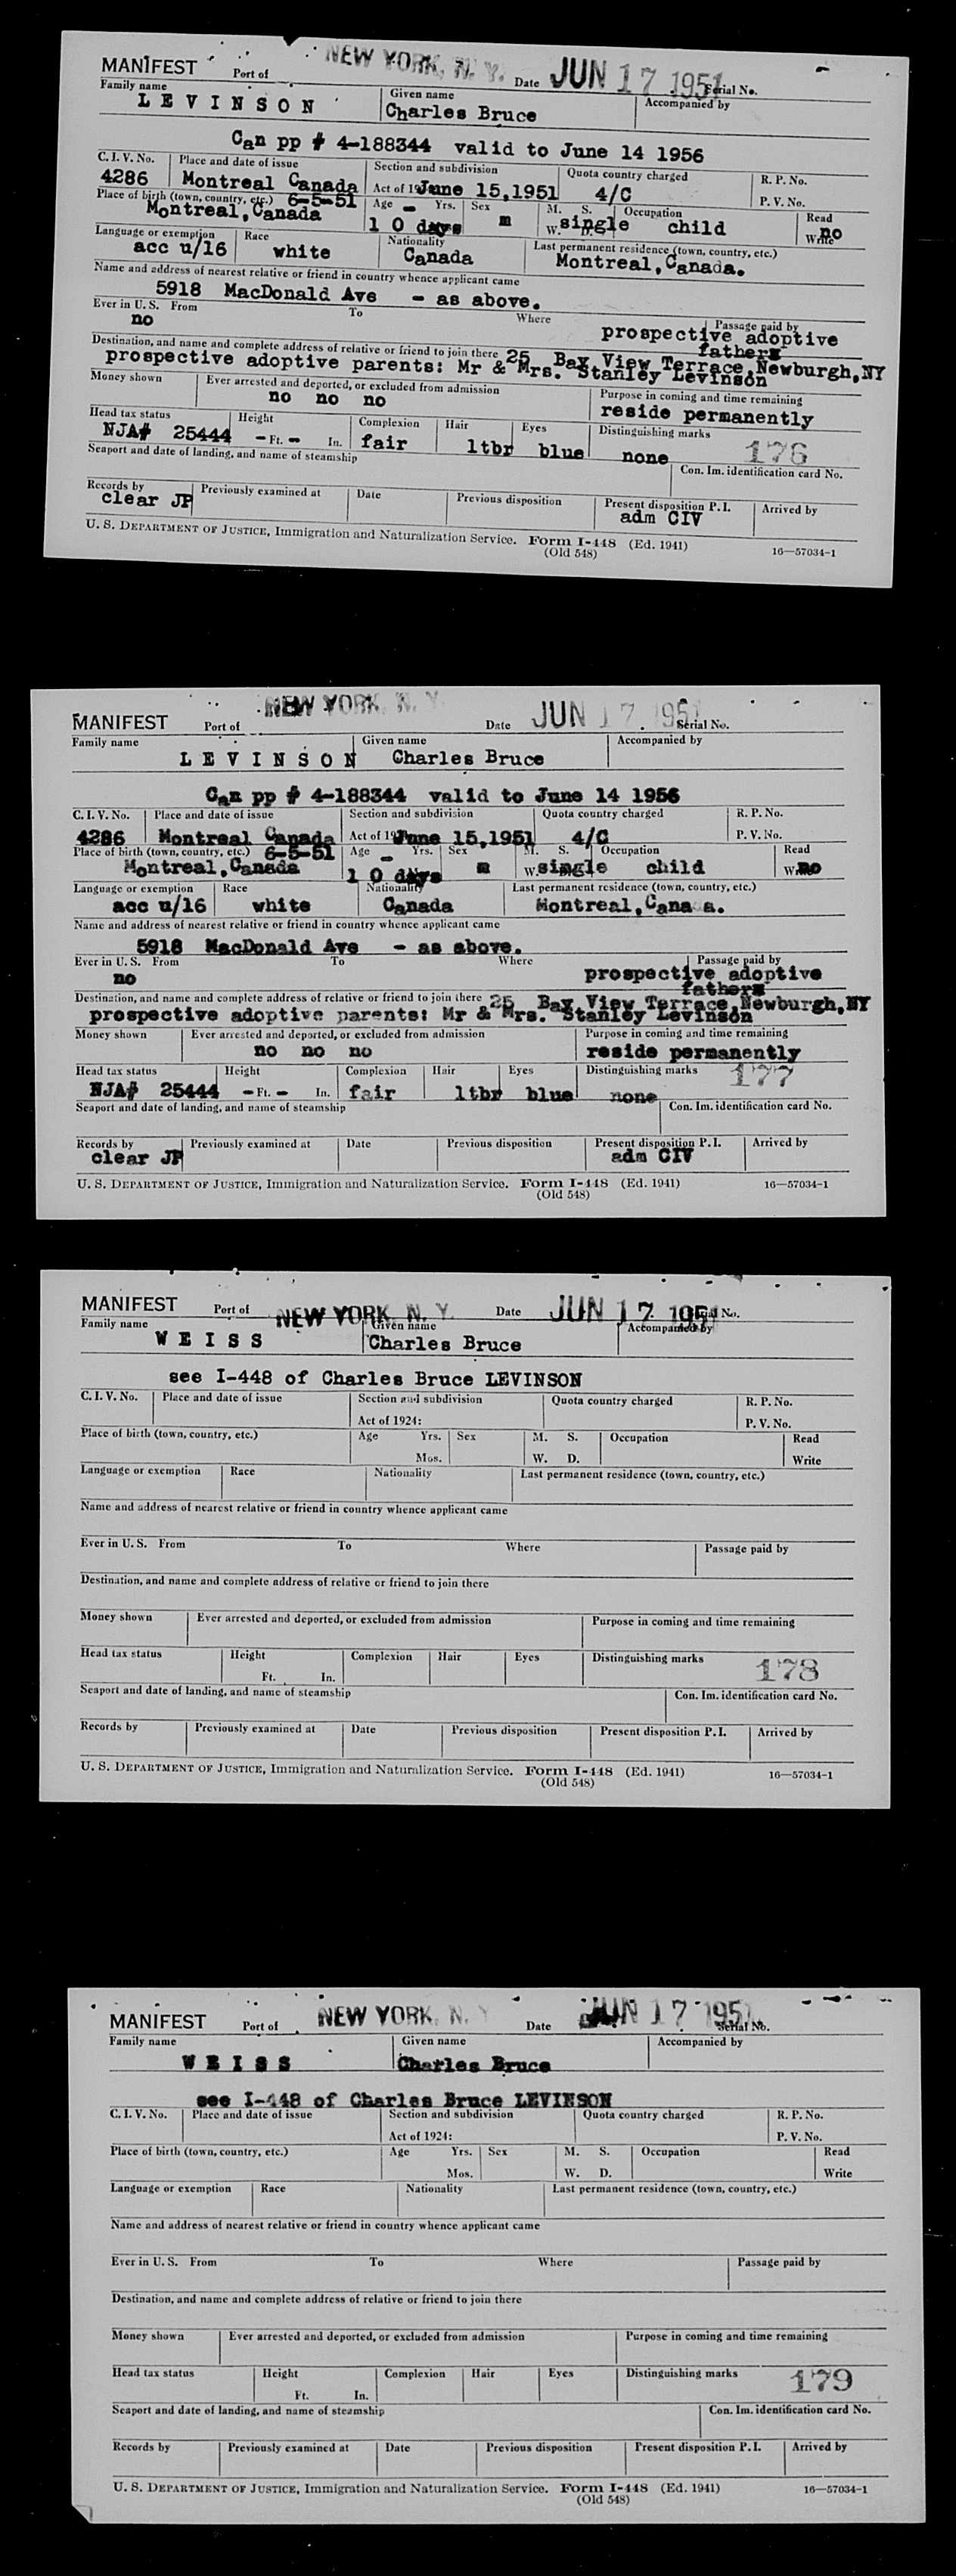 MANIFEST Port of NEW YORK, N. Y. Date JUN 17 1951 Serial No.
Family name Given name Accompanied by
LEVINSON Charles Bruce
Can pp # 4-188344 valid to June 14 1956
C. I. V. No. Place and date of issue Section and subdivision Quota country charged R. P. No.
4286 Montreal Canada Act of 19 June 15,1951 4/C P. V. No.
Place of birth (town, country, etc.) 6-5-51 Age Yrs. Sex M. S. Occupation Read
Montreal,Canada 10 days m W. single child Write no
Language or exemption Race Nationality Last permanent residence (town, country, etc.)
acc u/16 white Canada Montreal,Canada.
Name and address of nearest relative or friend in country whence applicant came
5918 MacDonald Ave - as above.
Ever in U. S. From To Where Passage paid by
no prospective adoptive
father
Destination, and name and complete address of relative or friend to join there 25 Bay View Terrace,Newburgh,NY
prospective adoptive parents: Mr & Mrs. Stanley Levinson
Money shown Ever arrested and deported, or excluded from admission Purpose in coming and time remaining
no no no reside permanently
Head tax status Height Complexion Hair Eyes Distinguishing marks 176
NJA# 25444 - Ft. - In. fair ltbr blue none
Seaport and date of landing, and name of steamship Con. Im. identification card No.
Records by Previously examined at Date Previous disposition Present disposition P. I. Arrived by
clear JP adm CIV
U. S. DEPARTMENT OF JUSTICE, Immigration and Naturalization Service. Form I-448 (Ed. 1941) 16—57034-1
(Old 548)
MANIFEST Port of NEW YORK, N. Y. Date JUN 17 1951 Serial No.
Family name Given name Accompanied by
LEVINSON Charles Bruce
Can pp # 4-188344 valid to June 14 1956
C. I. V. No. Place and date of issue Section and subdivision Quota country charged R. P. No.
4286 Montreal Canada Act of 19 June 15,1951 4/C P. V. No.
Place of birth (town, country, etc.) 6-5-51 Age Yrs. Sex M. S. Occupation Read
Montreal,Canada 10 days m W. single child no
Language or exemption Race Nationality Last permanent residence (town, country, etc.)
acc u/16 white Canada Montreal,Cana a.
Name and address of nearest relative or friend in country whence applicant came
5918 MacDonald Ave - as above.
Ever in U. S. From To Where Passage paid by
no prospective adoptive
father
Destination, and name and complete address of relative or friend to join there 25 Bay View Terrace,Newburgh,NY
prospective adoptive parents: Mr & Mrs. Stanley Levinson
Money shown Ever arrested and deported, or excluded from admission Purpose in coming and time remaining
no no no reside permanently
Head tax status Height Complexion Hair Eyes Distinguishing marks 177
NJA# 25444 - Ft. - In. fair ltbr blue none
Seaport and date of landing, and name of steamship Con. Im. identification card No.
Records by Previously examined at Date Previous disposition Present disposition P. I. Arrived by
clear JP adm CIV
U. S. DEPARTMENT OF JUSTICE, Immigration and Naturalization Service. Form I-448 (Ed. 1941) 16—57034-1
(Old 548)
MANIFEST Port of NEW YORK, N. Y. Date JUN 17 1951 Serial No.
Family name Given name Accompanied by
WEISS Charles Bruce
see I-448 of Charles Bruce LEVINSON
C. I. V. No. Place and date of issue Section and subdivision Quota country charged R. P. No.
Act of 1924: P. V. No.
Place of birth (town, country, etc.) Age Yrs. Sex M. S. Occupation Read
Mos. W. D. Write
Language or exemption Race Nationality Last permanent residence (town, country, etc.)
Name and address of nearest relative or friend in country whence applicant came
Ever in U. S. From To Where Passage paid by
Destination, and name and complete address of relative or friend to join there
Money shown Ever arrested and deported, or excluded from admission Purpose in coming and time remaining
Head tax status Height Complexion Hair Eyes Distinguishing marks 178
Ft. In.
Seaport and date of landing, and name of steamship Con. Im. identification card No.
Records by Previously examined at Date Previous disposition Present disposition P. I. Arrived by
U. S. DEPARTMENT OF JUSTICE, Immigration and Naturalization Service. Form I-448 (Ed. 1941) 16—57034-1
(Old 548)
MANIFEST Port of NEW YORK, N. Y Date JUN 17 1951 Serial No.
Family name Given name Accompanied by
WEISS Charles Bruce
see I-448 of Charles Bruce LEVINSON
C. I. V. No. Place and date of issue Section and subdivision Quota country charged R. P. No.
Act of 1924: P. V. No.
Place of birth (town, country, etc.) Age Yrs. Sex M. S. Occupation Read
Mos. W. D. Write
Language or exemption Race Nationality Last permanent residence (town, country, etc.)
Name and address of nearest relative or friend in country whence applicant came
Ever in U. S. From To Where Passage paid by
Destination, and name and complete address of relative or friend to join there
Money shown Ever arrested and deported, or excluded from admission Purpose in coming and time remaining
Head tax status Height Complexion Hair Eyes Distinguishing marks 179
Ft. In.
Seaport and date of landing, and name of steamship Con. Im. identification card No.
Records by Previously examined at Date Previous disposition Present disposition P. I. Arrived by
U. S. DEPARTMENT OF JUSTICE, Immigration and Naturalization Service. Form I-448 (Ed. 1941) 16—57034-1
(Old 548)